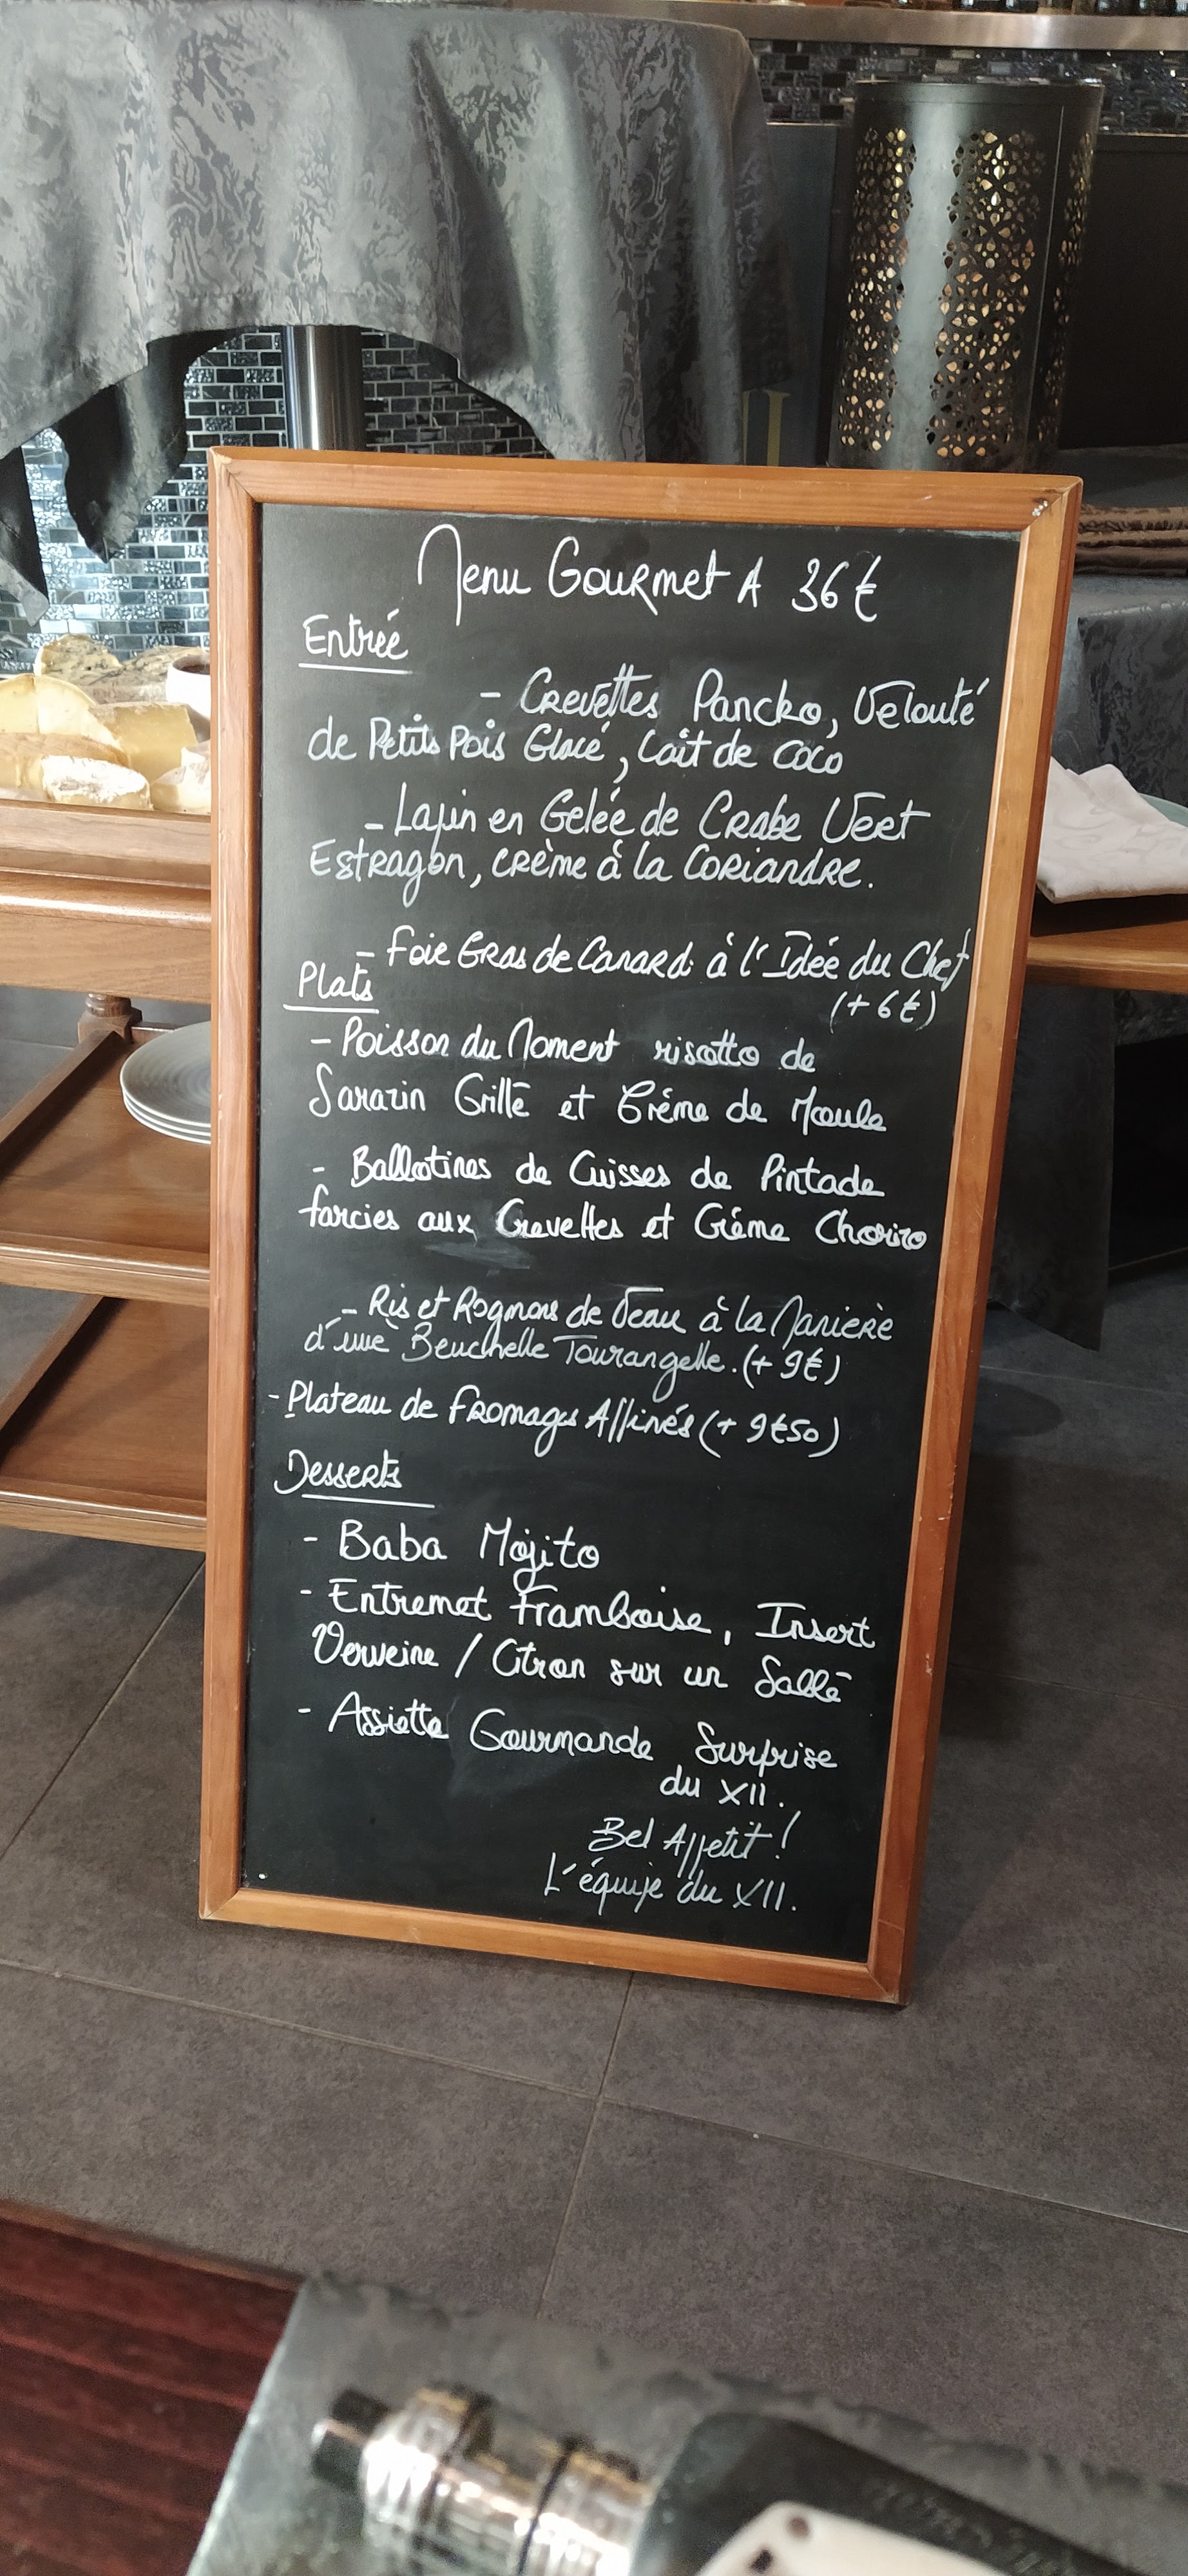 Menu Gourmet A 36€
Entrée
- Crevettes Pancko, Velouté
de Petits Pois Glacé, Lait de coco
- Lapin en Gelée de Crabe Vert
Estragon, crème à la Coriandre.
- Foie Gras de Canard à l'Idée du Chef
(+6€)
Plats
- Poisson du Moment risotto de
Sarazin Grillé et Crème de Moule
- Ballotines de Cuisses de Pintade
farcies aux Crevettes et Crème Chorizo
- Ris et Rognons de Veau à la Manière
d'une Beuchelle Tourangelle. (+ 9€)
- Plateau de fromages Affinés (+ 9€50)
Desserts
- Baba Mojito
- Entremet Framboise, Insert
Verveine / Citron sur un Sablé
- Assiette Gourmande Surprise
du XII.
Bel Appetit !
L'équipe du XII.